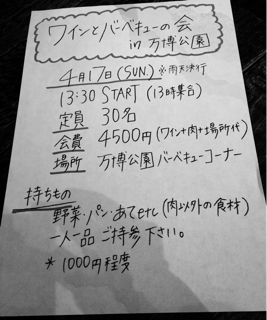 ワインとバーベキューの会
in 万博公園
4月17日(SUN.) ※雨天決行
13:30 START (13時集合)
定員 30名
会費 4500円(ワイン+肉+場所代)
場所 万博公園バーベキューコーナー
持ちもの
野菜・パン・あてetc (肉以外の食材)
一人一品 ご持参下さい。
* 1000円程度